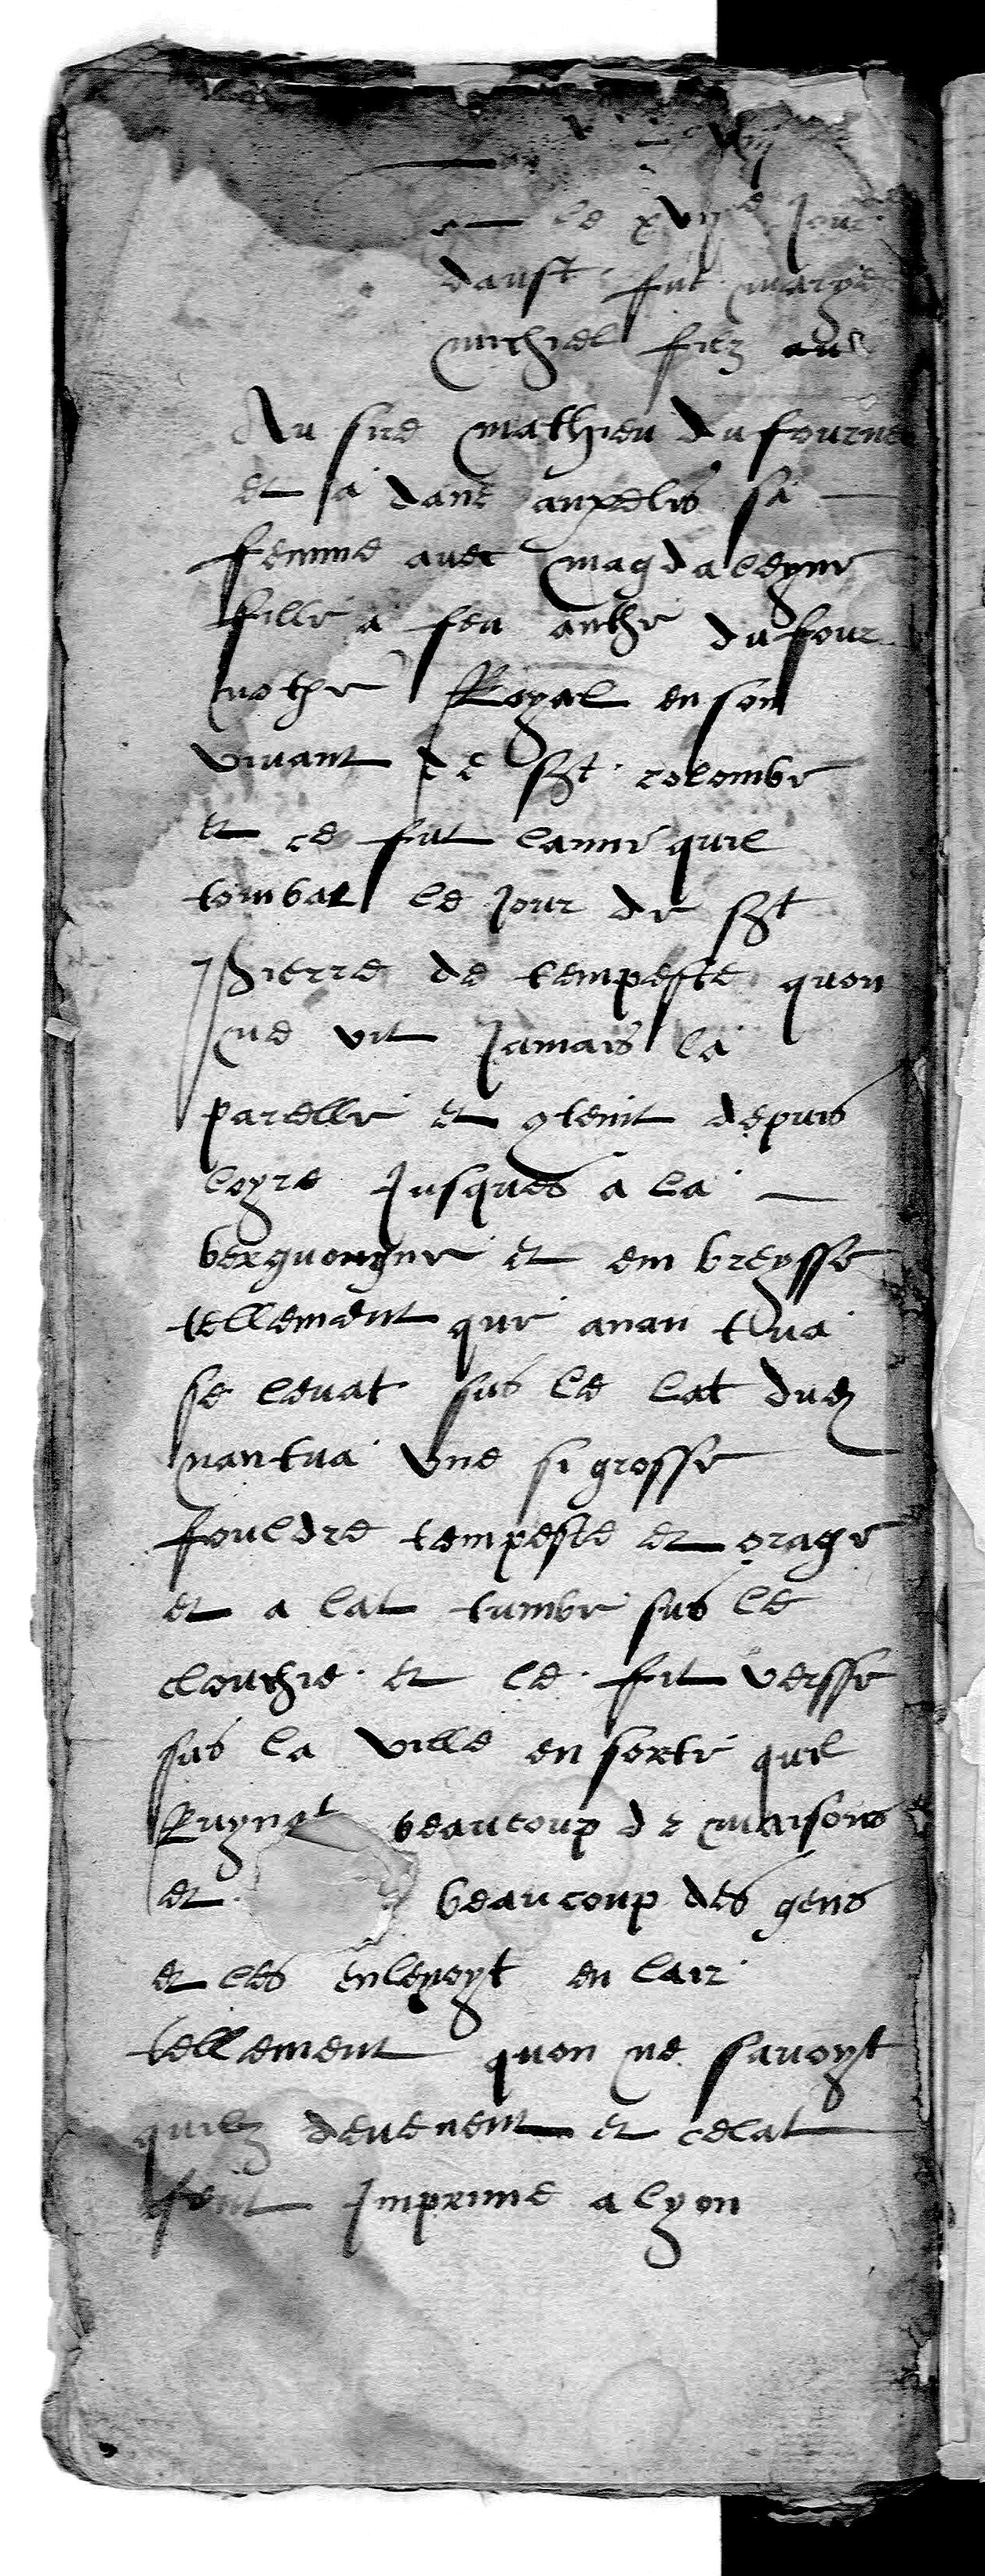 le xvij^e Jour
daust fut marye
michiel filz
Au sire mathieu du fourne
et a dane anpelis sa
femme avec magdaleyne
fille a feu anthe du four
nothe Royal en son
vivant de st colombe
et ce fut lanne quil
tombat le Jour de st
pierre de tempeste quon
ne vit Jamais la
parelle et gtenit depuis
loyre Jusques a la
berguongne et em breysse
tellement que anan tua
se levat sus le lat duz
nantua une si grosse
fouldre tempeste et orage
et a lat tumbe sus le
clouchie et le fit versse
sus la ville en sorte quil
Ruynat beaucoup de maisons
et beaucoup des gens
et les enlevoyt en lair
tellement quon ne savoyt
quilz devenent et celat
feut Imprime a lyon